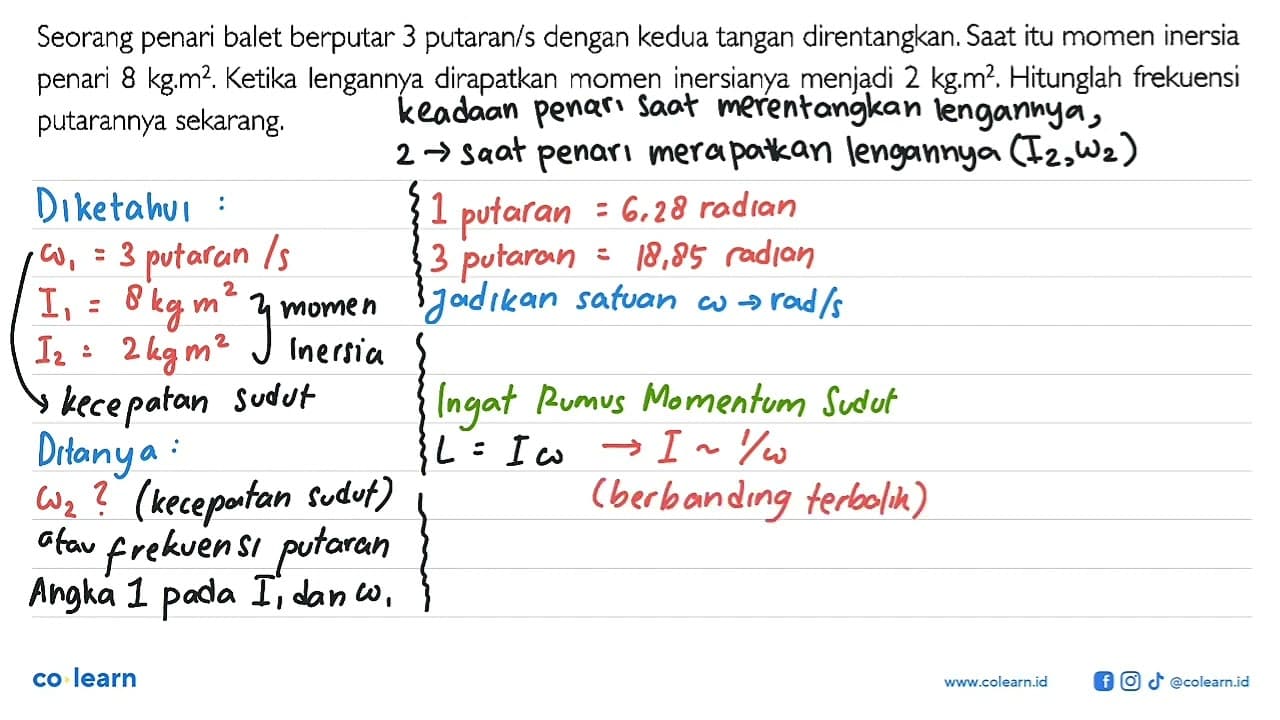 Seorang penari balet berputar 3 putaran/s dengan kedua tangan direntangkan. Saat itu momen inersia
penari 8 kg.m². Ketika lengannya dirapatkan momen inersianya menjadi 2 kg.m². Hitunglah frekuensi
putarannya sekarang.
keadaan penari saat merentangkan lengannya,
2 → saat penari merapatkan lengannya (I₂, ω₂)
Diketahui :
ω₁ = 3 putaran /s
I₁ = 8 kg m² } momen
I₂ = 2 kg m² } Inersia
→ kecepatan sudut
Ditanya :
ω₂ ? (kecepatan sudut)
atau frekuensi putaran
Angka 1 pada I₁ dan ω₁
1 putaran = 6,28 radian
3 putaran = 18,85 radian
Jadikan satuan ω → rad/s
Ingat Rumus Momentum Sudut
L = I ω → I ~ 1/ω
(berbanding terbalik)
co learn
www.colearn.id
@colearn.id